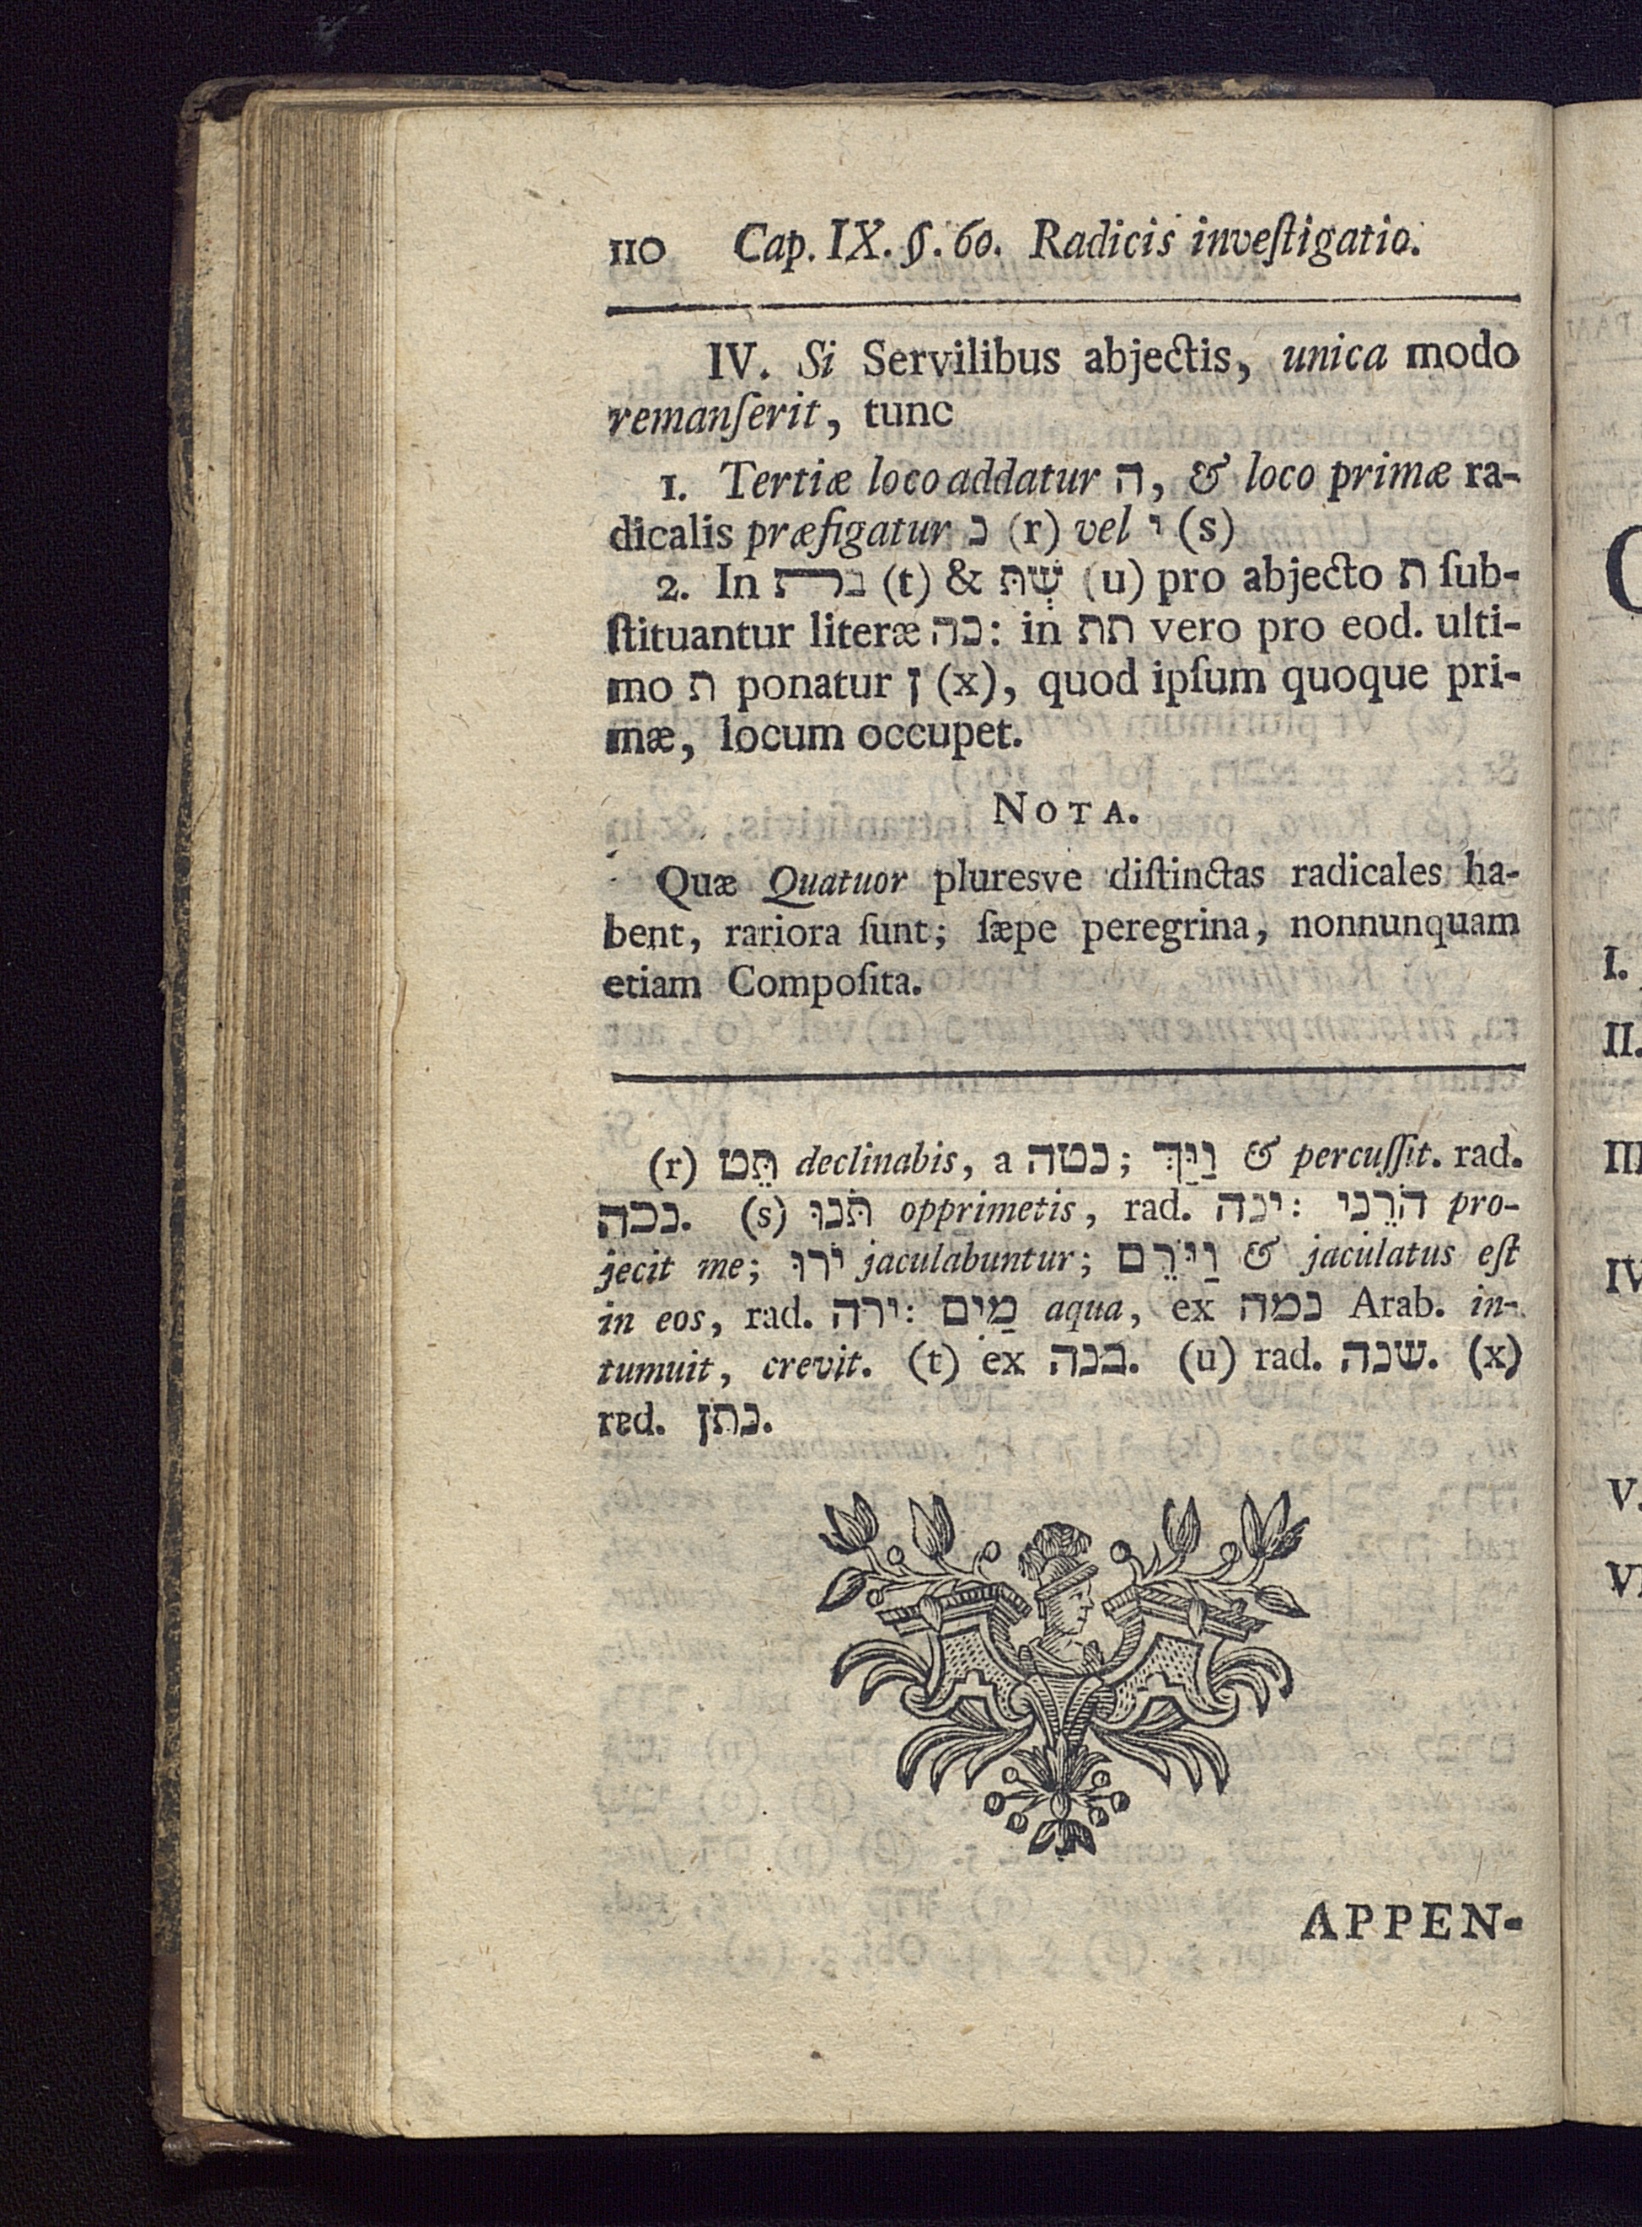 110 Cap. IX. §. 60. Radicis inveſtigatio.
IV. Si Servilibus abjectis, unica modo
remanſerit, tunc
1. Tertiæ loco addatur ה, & loco primæ ra-
dicalis præfigatur נ (r) vel י (s)
2. In (t) & (u) pro abjecto ת ſub-
ſtituantur literæ נה: in תת vero pro eod. ulti-
mo ת ponatur ן (x), quod ipſum quoque pri-
mæ, locum occupet.
NOTA.
Quæ Quatuor pluresve diſtinctas radicales ha-
bent, rariora ſunt; ſæpe peregrina, nonnunquam
etiam Compoſita.
(r) תֵּט declinabis, a נטה; וַיַּךְ & percuſſit. rad.
נכה. (s) תֹּנוּ opprimetis, rad. ינה: הֹרֵנִי pro-
jecit me; יֹרוּ jaculabuntur; וַיֹּרֵם & jaculatus eſt
in eos, rad. ירה: מַיִם aqua, ex נמה Arab. in-
tumuit, crevit. (t) ex בנה. (u) rad. שנה. (x)
rad. נתן.
APPEN-
I.
II.
III
IV
V.
VI